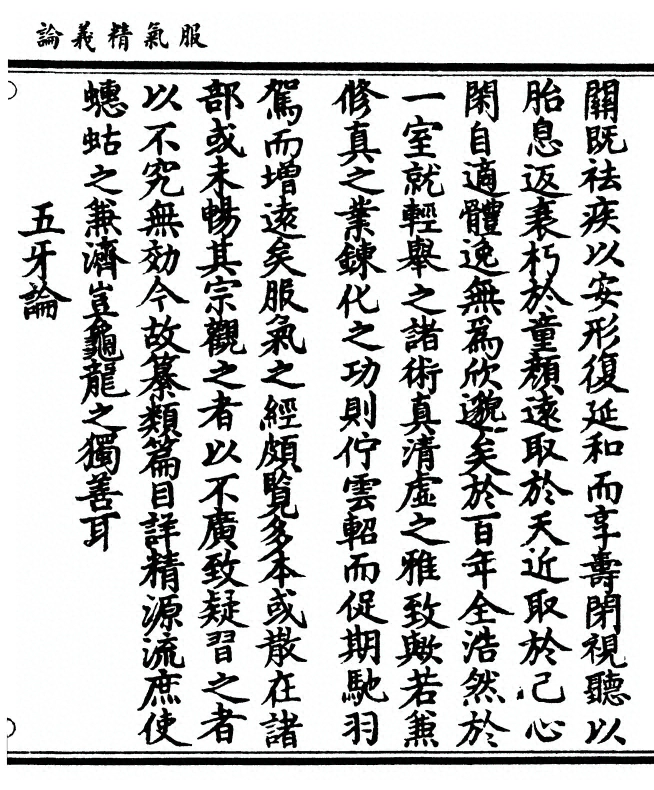 服氣精義論
關既祛疾以安形復延和而享壽閉視聽以
胎息返衰朽於童顏遠取於天近取於己心
閑自適體逸無爲欣邈矣於百年全浩然於
一室就輕舉之諸術真清虛之雅致歟若兼
修真之業鍊化之功則佇雲軺而促期馳羽
駕而增遠矣服氣之經頗覽多本或散在諸
部或未暢其宗觀之者以不廣致疑習之者
以不究無効今故纂類篇目詳精源流庶使
蟪蛄之兼濟豈龜龍之獨善耳
五牙論